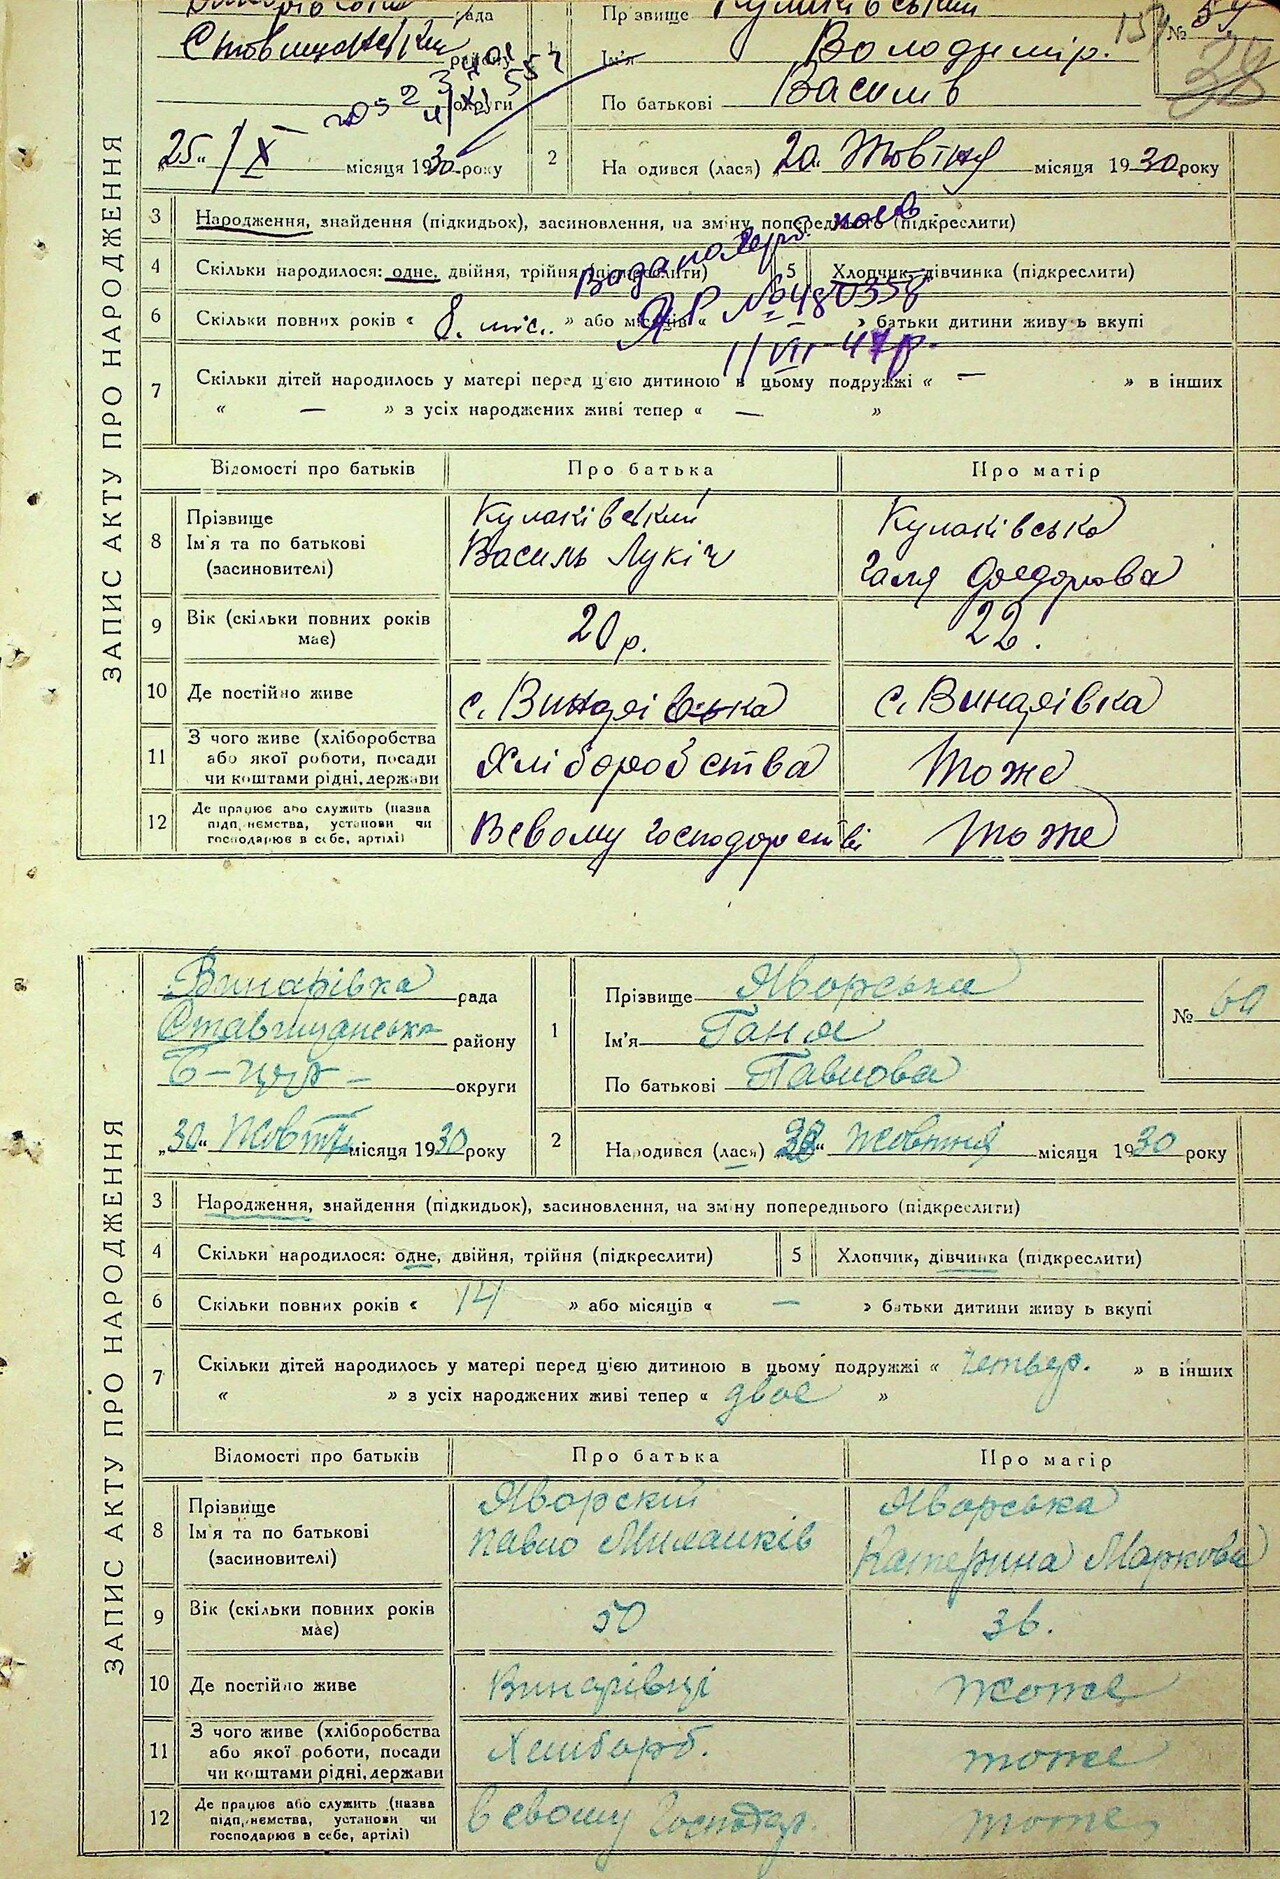 рада
Ставищанський
району
округи
„25“ / X місяця 1930 року
Прізвище Кулаківський
Ім'я Володимір.
По батькові Василів
№ 59
28
2 Народився (лася) „20 Жовтня місяця 1930 року
ЗАПИС АКТУ ПРО НАРОДЖЕННЯ
3 Народження, знайдення (підкидьок), засиновлення, на зміну попереднього (підкреслити)
4 Скільки народилося: одне, двійня, трійня (підкреслити) 5 Хлопчик, дівчинка (підкреслити)
ЯР № 480358
1/VII-47р.
6 Скільки повних років « 8. міс. » або місяців « » батьки дитини живуть вкупі
7 Скільки дітей народилось у матері перед ц'єю дитиною в цьому подружжі « — » в інших
« — » з усіх народжених живі тепер « — »
Відомості про батьків Про батька Про матір
8 Прізвище Ім'я та по батькові (засиновителі)
Кулаківський
Василь Лукіч
Кулаківська
Галя Федорова
9 Вік (скільки повних років має) 20 р. 22.
10 Де постійно живе с. Винарівка с. Винарівка
11 З чого живе (хліборобства або якої роботи, посади чи коштами рідні, держави Хліборобства Тоже
12 Де працює або служить (назва підприємства, установи чи господарює в себе, артілі) В свому господарстві Тоже
ЗАПИС АКТУ ПРО НАРОДЖЕННЯ
Винарівка рада
Ставищанська району
Б-Церк- округи
„30“ Жовтн місяця 1930 року
1 Прізвище Яворська
Ім'я Ганя
По батькові Павлова
№ 60
2 Народився (лася) „28“ Жовтня місяця 1930 року
3 Народження, знайдення (підкидьок), засиновлення, на зміну попереднього (підкреслити)
4 Скільки народилося: одне, двійня, трійня (підкреслити) 5 Хлопчик, дівчинка (підкреслити)
6 Скільки повних років « 14 » або місяців « — » батьки дитини живуть вкупі
7 Скільки дітей народилось у матері перед ц'єю дитиною в цьому подружжі « четвер. » в інших
« » з усіх народжених живі тепер « двое »
Відомості про батьків Про батька Про матір
8 Прізвище Ім'я та по батькові (засиновителі)
Яворский
Павло
Яворська
Катерина Маркова
9 Вік (скільки повних років має) 50 36.
10 Де постійно живе Винарівці тоже
11 З чого живе (хліборобства або якої роботи, посади чи коштами рідні, держави Хлиборб. тоже
12 Де працює або служить (назва підприємства, установи чи господарює в себе, артілі) в свому Господар. тоже